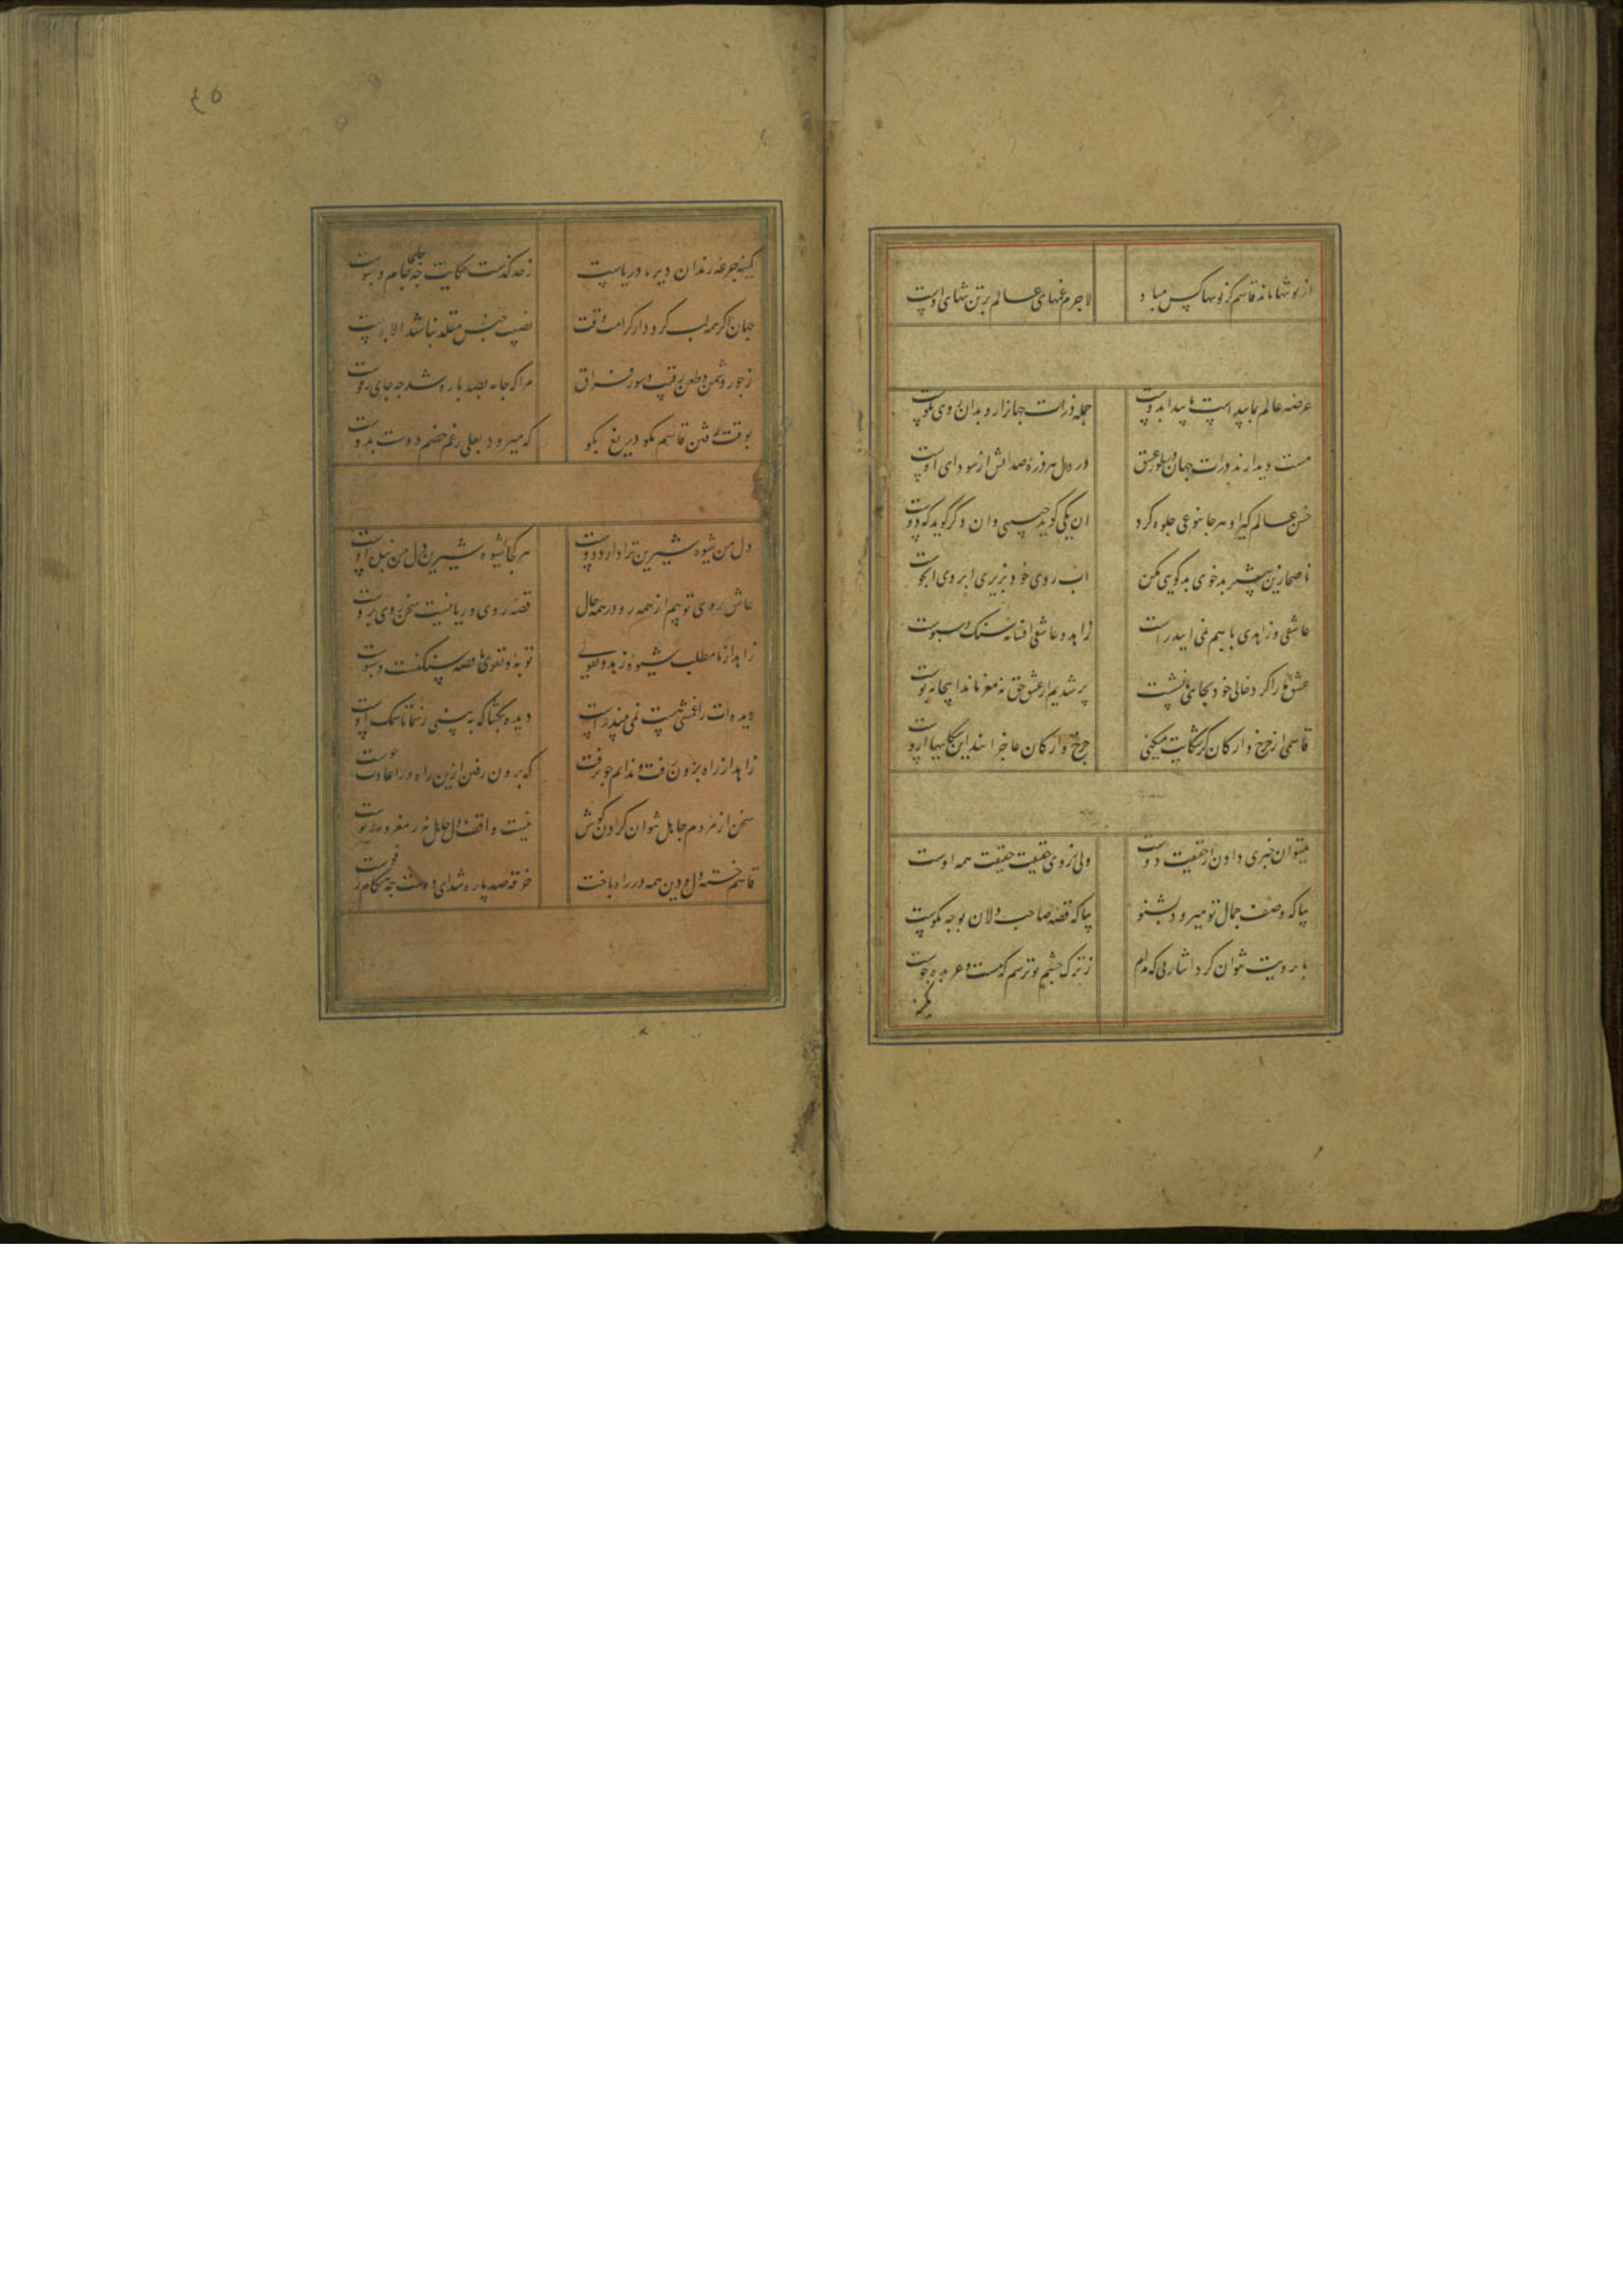 از تو تنها ماند قاسم کز تو تنها کس مباد
لاجرم غمهای عالم بر تن تنهای اوست
عرصه عالم بما پیداست ما پیدا بدوست
جمله ذرات جهانرا رو بدان روی نکوست
مست دیدارند ذرات جهان در طور عشق
در دل هر ذره صد آتش از سودای اوست
حسن عالم گیر او هر جا بنوعی جلوه کرد
ان یکی گوید حبیبی وان دگر گوید که دوست
ناصحا زین بیشتر بدخوی بدگویی مکن
اب روی خود نریزی ابروی ابجوست
عاشقی و زاهدی باهم نمی اید راست
زاهد و عاشق افسانه سنک و سبوست
عشق ما را کرد خالی خود بجای ما نشست
پر شدیم از عشق حق نه مغز ماند اینجا نه پوست
قاسمی از چرخ و ارکان گر شکایت میکنی
چرخ و ارکان عاجزانند این شکایتها ازوست
میتوان خبری دادن از حقیقت دوست
ولی ز روی حقیقت حقیقت همه اوست
بیا که وصف جمال تو میرود بشنو
بیا که قصه صاحب دلان بوجه نکوست
بابرویت نتوان کرد اشارتی که مدام
ز ترک چشم تو ترسم که مست و عربده جوست
کمینه
۴۵
کمینه جرعه رندان دیر ما دریاست
ز حد گذشت حکایت چه جای جام و سبوست
جهان اگر همه لب گردد ار کرامت وقت
نصیب جنس مقلد نباشد الا پوست
ز جور دشمن و طعن رقیب و سوز فراق
مرا که جامه بصد پاره شد چه جای رفوست
بوقت رفتن قاسم مگو دریغ بگو
که میرود بعلی رغم خصم دوست بدوست
دل من شیوه شیرین ترا دارد دوست
هر کجا شیوه شیرین دل من مایل اوست
عاشق روی توییم از همه رو در همه حال
قصه روی و ریا نیست سخن روی بروست
زاهد از ما مطلب شیوه زهد و تقوی
توبه و تقوی ما قصه سنگست و سبوست
دیده ات را غمشی هست نمی بیند راست
دیده بگشا که به بینی ز سما تا سمک اوست
زاهد از راه برون رفت و ندانم چو برفت
که برون رفتن ازین راه ورا عادت و خوست
سخن از مردم جاهل نتوان کردن گوش
نیست واقف دل جاهل نه ز مغز و نه ز پوست
قاسم خسته دل و دین همه در راه باخت
خرقه صد پاره شد ای دوست چه هنگام رفوست